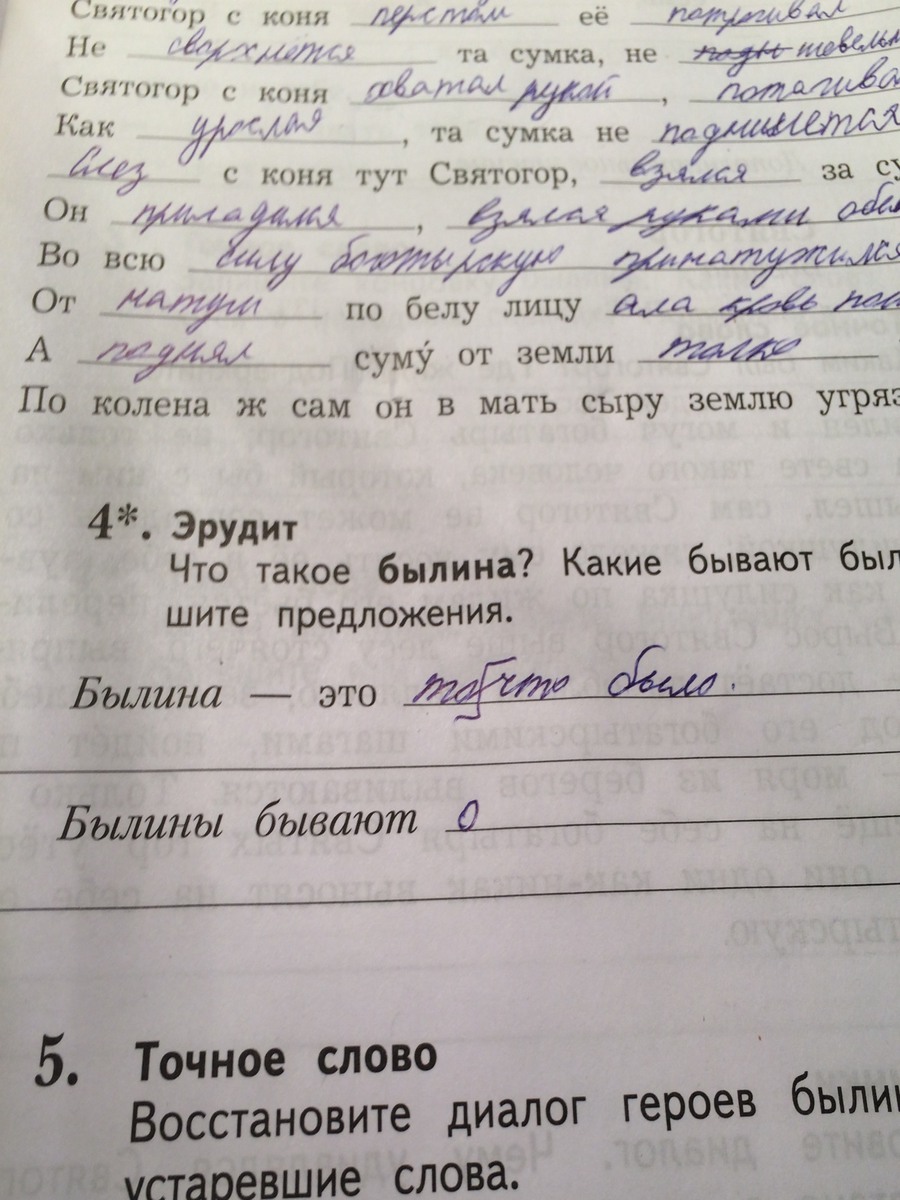 Святогор с коня перстом её потрогивал
Не сворхнется та сумка, не шевельн
Святогор с коня хватал рукой, потягива
Как урослая, та сумка не поднимется
Слез с коня тут Святогор, взялся за су
Он приладился, взялся руками обеи
Во всю силу богатырскую принатужился
От натуги по белу лицу ала кровь пош
А поднял суму́ от земли только
По колена ж сам он в мать сыру землю угряз
4*. Эрудит
Что такое былина? Какие бывают был
шите предложения.
Былина — это то что было.
Былины бывают о
5. Точное слово
Восстановите диалог героев былин
устаревшие слова.